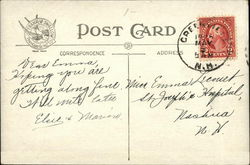 POST CARD
CORRESPONDENCE
ADDRESS
N.H.
Dear Emma,
Hoping you are
getting along fine.
Will write later
Elsie & Marion
Miss Emma
St. Joseph's Hospital,
Nashua
N. H